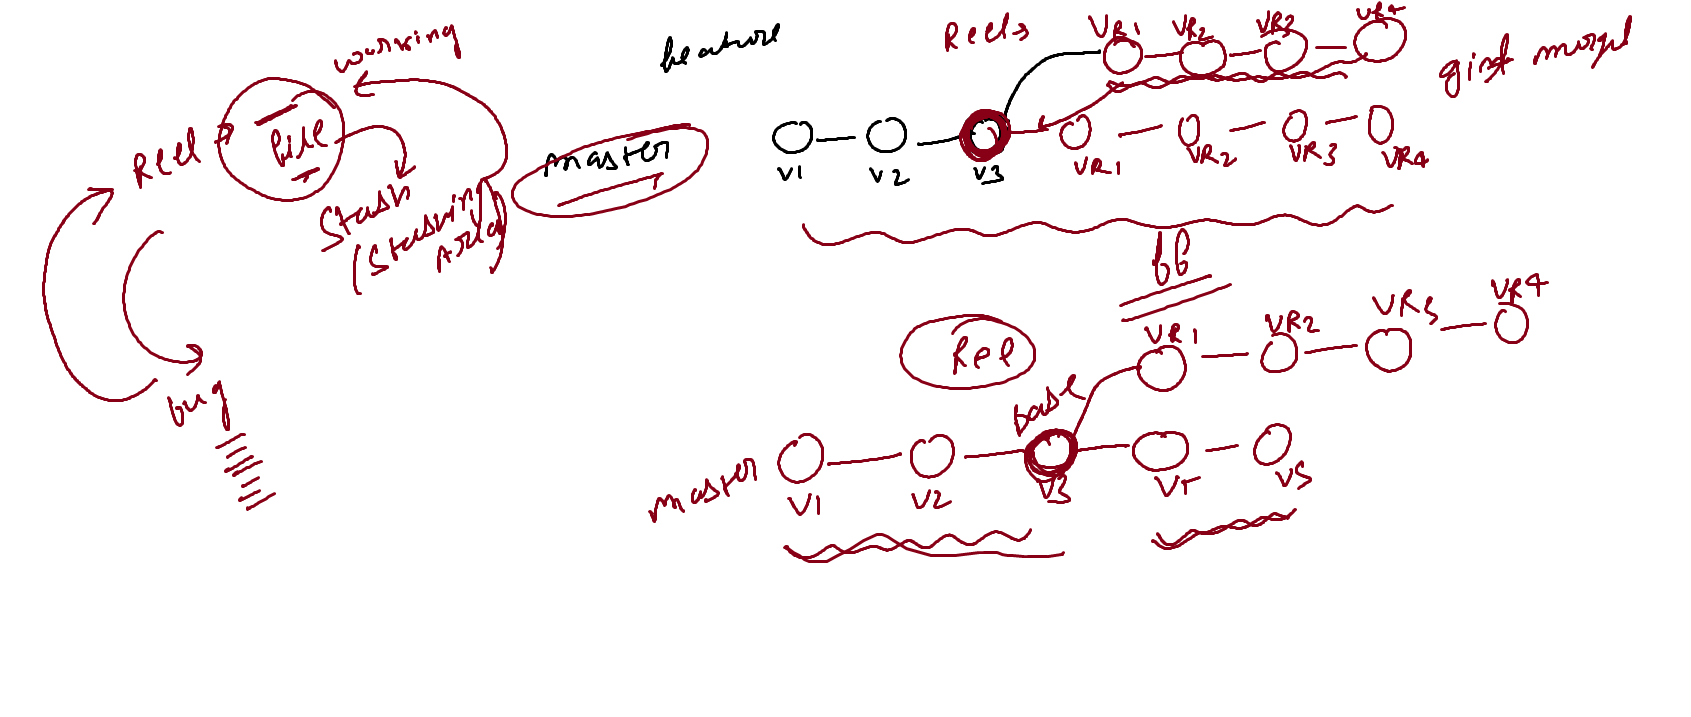 working
Reel
file
Stash
(Stashing
Area)
bug
feature
master
Reels
VR1 VR2 VR3 VR4
git merge
V1 V2 V3 VR1 VR2 VR3 VR4
ff
Reel
base
VR1 VR2 VR3 VR4
master
V1 V2 V3 V4 V5